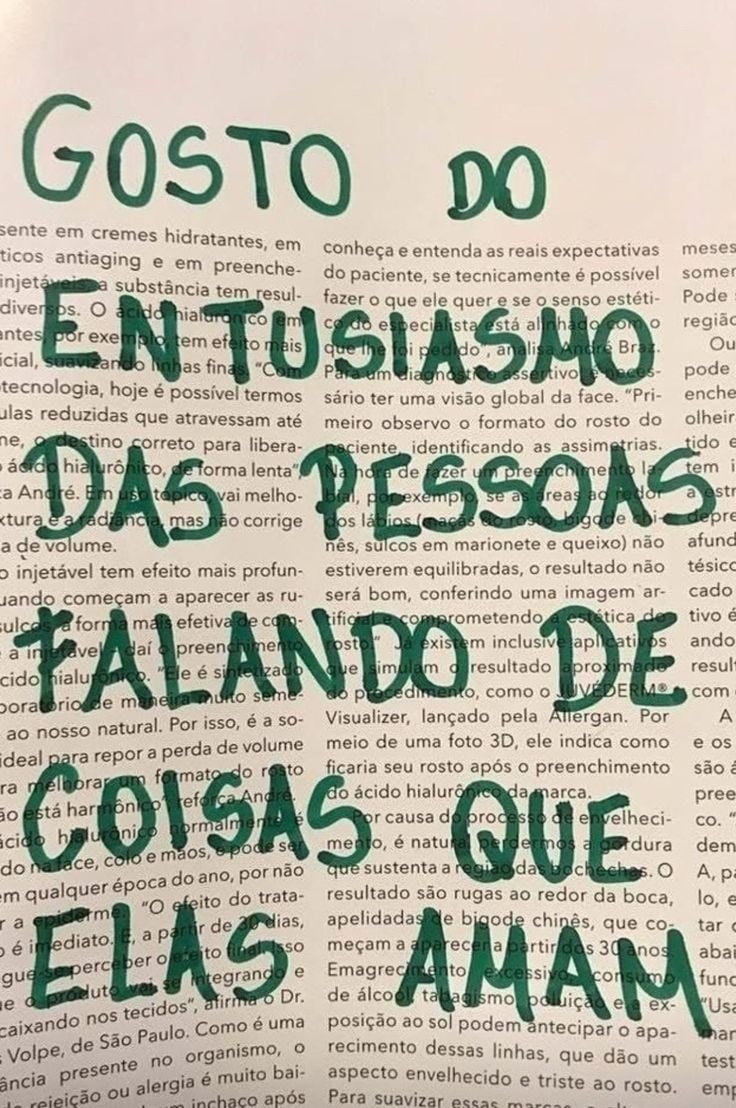 GOSTO DO
ENTUSIASMO
DAS PESSOAS
FALANDO DE
COISAS QUE
ELAS AMAM
sente em cremes hidratantes, em
ticos antiaging e em preenche-
injetáveis, a substância tem resul-
diversos. O ácido hialurônico em
antes, por exemplo, tem efeito mais
icial, suavizando linhas finas. "Com
tecnologia, hoje é possível termos
ulas reduzidas que atravessam até
me, o destino correto para libera-
o ácido hialurônico, de forma lenta",
ca André. Em uso tópico, vai melho-
xtura e a radiância, mas não corrige
a de volume.
o injetável tem efeito mais profun-
uando começam a aparecer as ru-
sulcos, a forma mais efetiva de com-
é a injetável, daí o preenchimento
cido hialurônico. "Ele é sintetizado
boratório de maneira muito seme-
ao nosso natural. Por isso, é a so-
ideal para repor a perda de volume
ra melhorar um formato do rosto
ão está harmônico", reforça André.
ácido hialurônico normalmente é
do na face, colo e mãos, e pode ser
em qualquer época do ano, por não
r a epiderme. "O efeito do trata-
o é imediato. E, a partir de 30 dias,
gue-se perceber o efeito final. Isso
e o produto vai se integrando e
caixando nos tecidos", afirma o Dr.
Volpe, de São Paulo. Como é uma
ância presente no organismo, o
rejeição ou alergia é muito bai-
inchaço após
conheça e entenda as reais expectativas
do paciente, se tecnicamente é possível
fazer o que ele quer e se o senso estéti-
co do especialista está alinhado com o
que lhe foi pedido", analisa André Braz.
Para um diagnóstico assertivo é neces-
sário ter uma visão global da face. "Pri-
meiro observo o formato do rosto do
paciente, identificando as assimetrias.
Na hora de fazer um preenchimento la-
bial, por exemplo, se as áreas ao redor
dos lábios (maçãs do rosto, bigode chi-
nês, sulcos em marionete e queixo) não
estiverem equilibradas, o resultado não
será bom, conferindo uma imagem ar-
tificial e comprometendo a estética do
rosto." Já existem inclusive aplicativos
que simulam o resultado aproximado
do procedimento, como o JUVÉDERM®
Visualizer, lançado pela Allergan. Por
meio de uma foto 3D, ele indica como
ficaria seu rosto após o preenchimento
do ácido hialurônico da marca.
Por causa do processo de envelheci-
mento, é natural perdermos a gordura
que sustenta a região das bochechas. O
resultado são rugas ao redor da boca,
apelidadas de bigode chinês, que co-
meçam a aparecer a partir dos 30 anos.
Emagrecimento excessivo, consumo
de álcool, tabagismo, poluição e a ex-
posição ao sol podem antecipar o apa-
recimento dessas linhas, que dão um
aspecto envelhecido e triste ao rosto.
Para suavizar essas marcas
meses
somen
Pode
região
Ou
pode
enche
olheir
tido e
tem i
a estr
depre
afund
tésico
cado
tivo é
ando
result
com
A
e os
são á
pree
co. "
dem
A, pa
lo, e
tar
abai
func
"Usa
man
test
emp